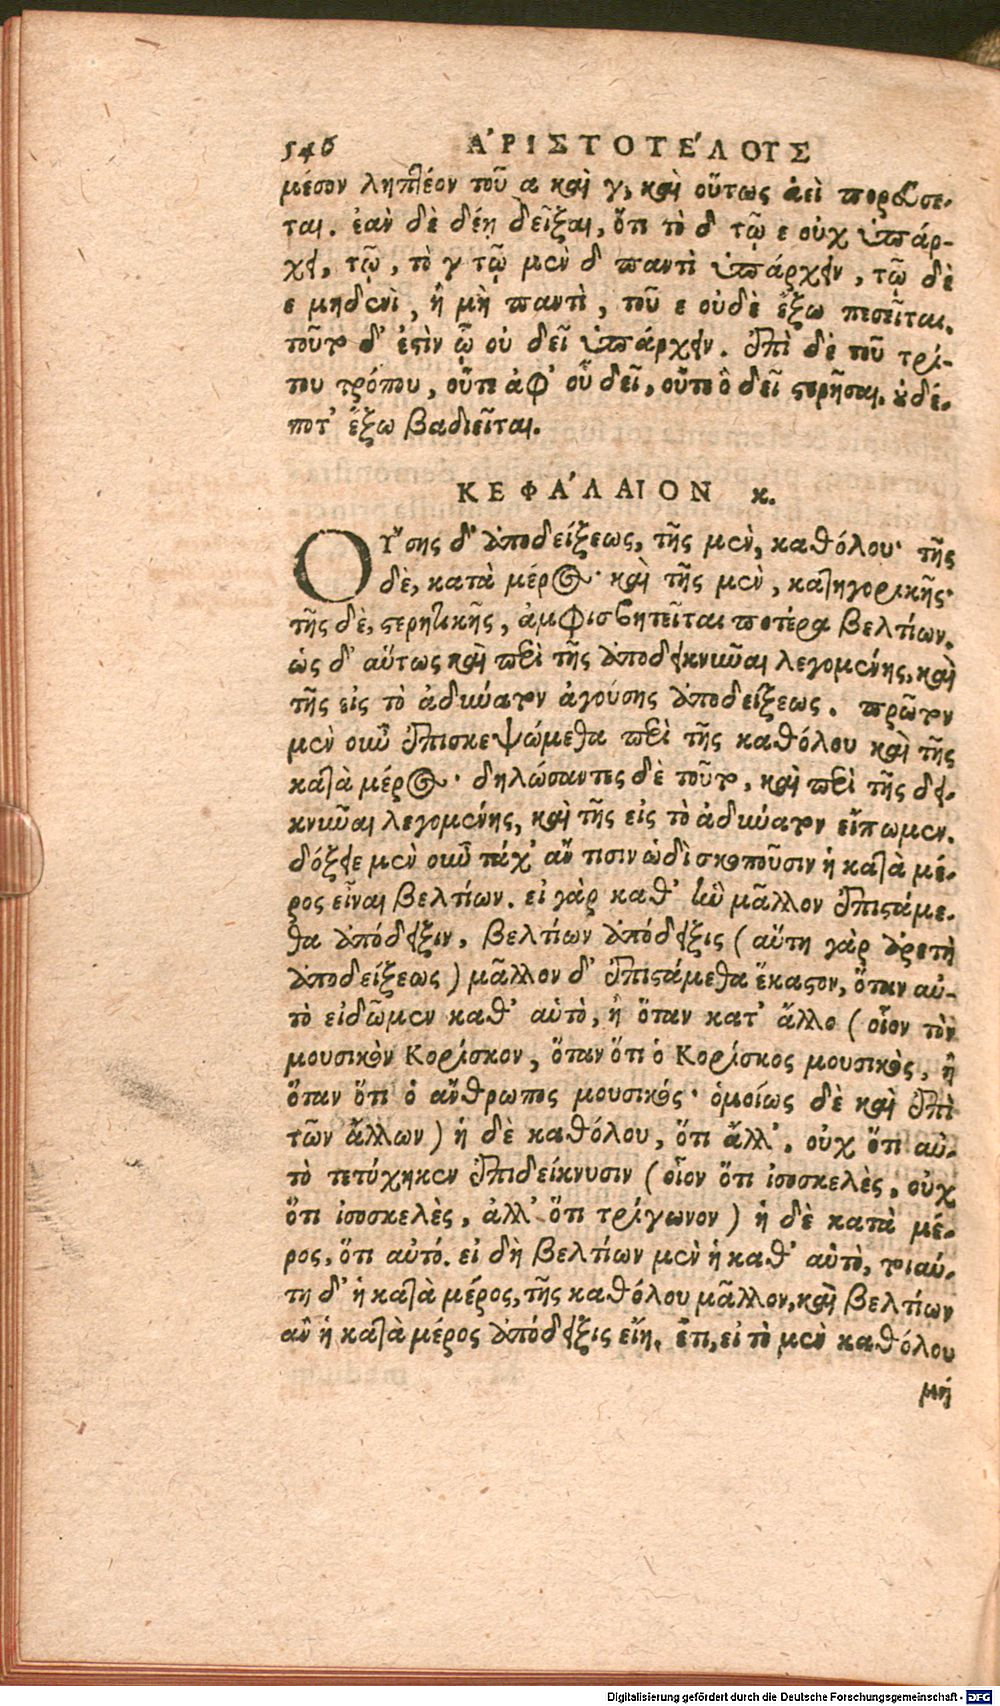 546 ἈΡΙΣΤΟΤΈΛΟΥΣ
μέσον ληπτέον τοῦ α καὶ γ, καὶ οὕτως ἀεὶ πορεύσε-
ται. ἐὰν δὲ δέῃ δεῖξαι, ὅτι τὸ δ τῷ ε οὐχ ὑπάρ-
χει, τῷ, τὸ γ τῷ μὲν δ παντὶ ὑπάρχειν, τῷ δὲ
ε μηδενὶ, ἢ μὴ παντὶ, τοῦ ε οὐδὲ ἔξω πεσεῖται.
τοῦτο δ' ἐστὶν ᾧ οὐ δεῖ ὑπάρχειν. ἐπὶ δὲ τοῦ τρί-
του τρόπου, οὔτε ἀφ' οὗ δεῖ, οὔτε ὃ δεῖ στερῆσαι, οὐδέ-
ποτ' ἔξω βαδιεῖται.
ΚΕΦΆΛΑΙΟΝ κ.
ΟΥ̓́σης δ' ἀποδείξεως, τῆς μὲν, καθόλου· τῆς
δὲ, κατὰ μέρος· καὶ τῆς μὲν, κατηγορικῆς·
τῆς δὲ, στερητικῆς, ἀμφισβητεῖται ποτέρα βελτίων.
ὡς δ' αὕτως καὶ περὶ τῆς ἀποδεικνῦναι λεγομένης, καὶ
τῆς εἰς τὸ ἀδύνατον ἀγούσης ἀποδείξεως. πρῶτον
μὲν οὖν ἐπισκεψώμεθα περὶ τῆς καθόλου καὶ τῆς
κατὰ μέρος· δηλώσαντες δὲ τοῦτο, καὶ περὶ τῆς δει-
κνῦναι λεγομένης, καὶ τῆς εἰς τὸ ἀδύνατον εἴπωμεν.
δόξειε μὲν οὖν τάχ' ἄν τισιν ὡδὶ σκοποῦσιν ἡ κατὰ μέ-
ρος εἶναι βελτίων. εἰ γὰρ καθ' ἣν μᾶλλον ἐπιστάμε-
θα ἀπόδειξιν, βελτίων ἀπόδειξις (αὕτη γὰρ ἀρετὴ
ἀποδείξεως) μᾶλλον δ' ἐπιστάμεθα ἕκαστον, ὅταν αὐ-
τὸ εἰδῶμεν καθ' αὑτὸ, ἢ ὅταν κατ' ἄλλο (οἷον τὸν
μουσικὸν Κορίσκον, ὅταν ὅτι ὁ Κορίσκος μουσικὸς, ἢ
ὅταν ὅτι ὁ ἄνθρωπος μουσικός· ὁμοίως δὲ καὶ ἐπὶ
τῶν ἄλλων) ἡ δὲ καθόλου, ὅτι ἄλλ', οὐχ ὅτι αὐ-
τὸ τετύχηκεν ἐπιδείκνυσιν (οἷον ὅτι ἰσοσκελὲς, οὐχ
ὅτι ἰσοσκελὲς, ἀλλ' ὅτι τρίγωνον) ἡ δὲ κατὰ μέ-
ρος, ὅτι αὐτό. εἰ δὴ βελτίων μὲν ἡ καθ' αὑτὸ, τοιαύ-
τη δ' ἡ κατὰ μέρος, τῆς καθόλου μᾶλλον, καὶ βελτίων
ἂν ἡ κατὰ μέρος ἀπόδειξις εἴη. ἔτι, εἰ τὸ μὲν καθόλου
μή
Digitalisierung gefördert durch die Deutsche Forschungsgemeinschaft - DFG